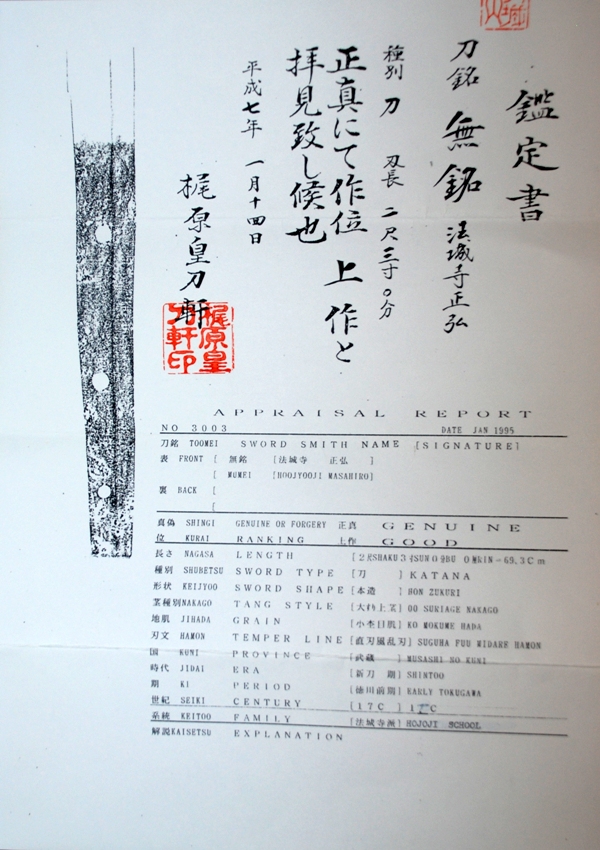 鑑定書
刀銘 無銘 法城寺正弘
種別 刀 刃長 二尺三寸〇分
正真にて作位 上作と
拝見致し候也
平成七年 一月十四日
梶原皇刀軒
梶原皇刀軒印
APPRAISAL REPORT
NO 3003 DATE JAN 1995
刀銘 TOOMEI SWORD SMITH NAME [SIGNATURE]
表 FRONT [ 無銘 [法城寺 正弘 ]
[ MUMEI [HOOJYOOJI MASAHIRO]
裏 BACK [
[
真偽 SHINGI GENUINE OR FORGERY 正真 GENUINE
位 KURAI RANKING 上作 GOOD
長さ NAGASA LENGTH [2尺SHAKU 3寸SUN 0分BU 0 MRIN=69.3Cm
種別 SHUBETSU SWORD TYPE [刀 ] KATANA
形状 KEIJYOO SWORD SHAPE [本造 ] HON ZUKURI
茎種別NAKAGO TANG STYLE [大磨上茎] OO SURIAGE NAKAGO
地肌 JIHADA GRAIN [小杢目肌] KO MOKUME HADA
刃文 HAMON TEMPER LINE [直刃風乱刃] SUGUHA FUU MIDARE HAMON
国 KUNI PROVINCE [武蔵 ] MUSASHI NO KUNI
時代 JIDAI ERA [新刀 期] SHINTOO
期 KI PERIOD [徳川前期] EARLY TOKUGAWA
世紀 SEIKI CENTURY [17C ]
系統 KEITOO FAMILY [法城寺派] HOJOJI SCHOOL
解説KAISETSU EXPLANATION